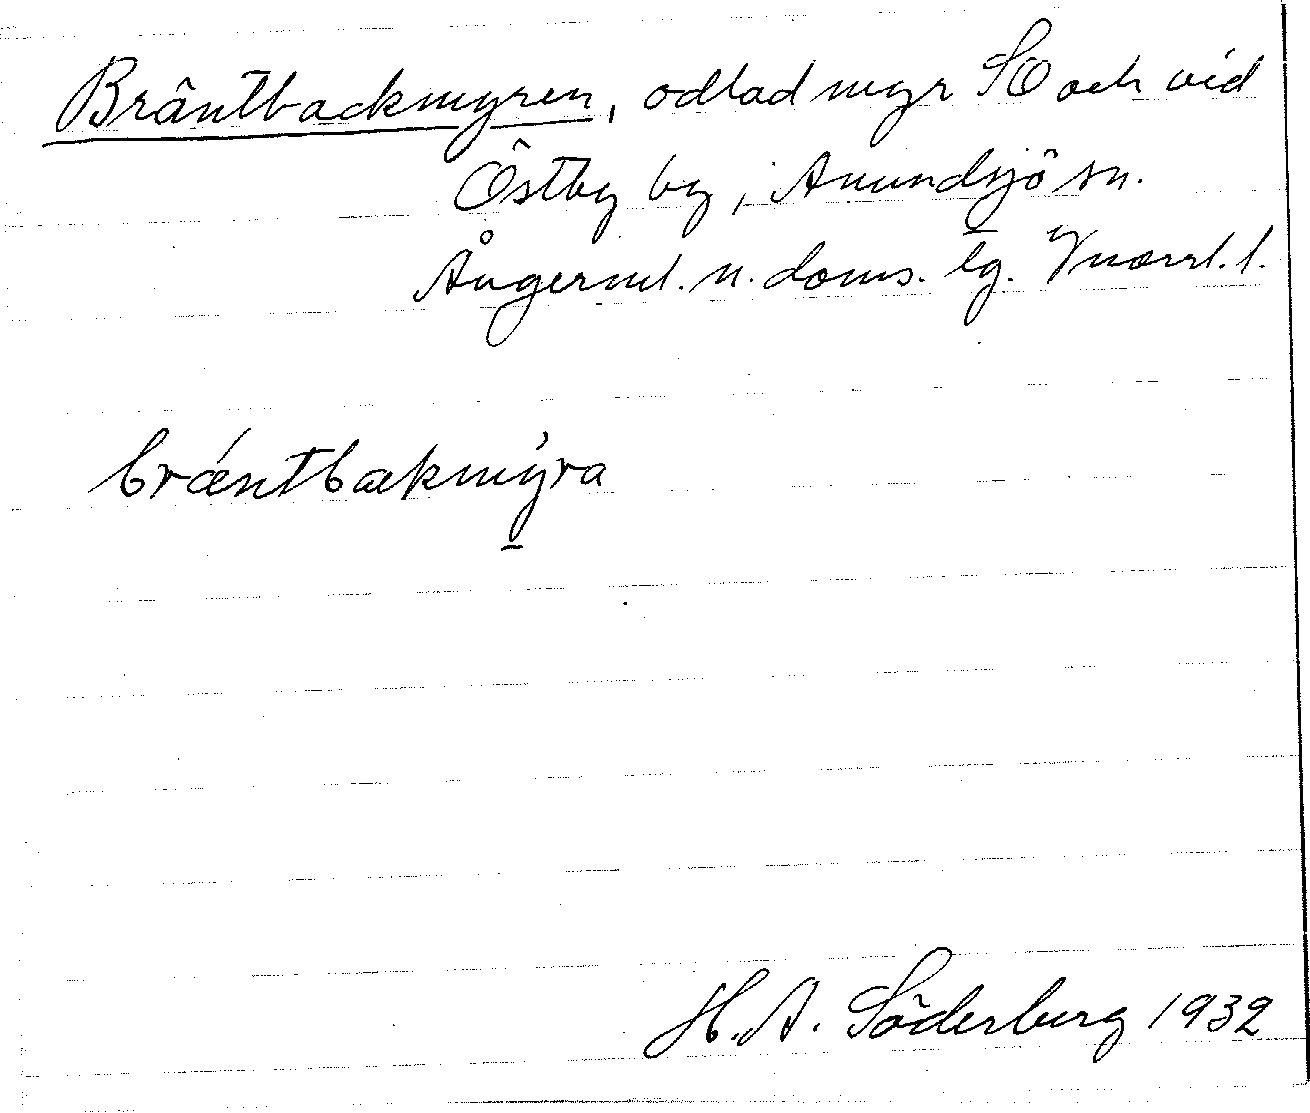 Bräntbackmyren, odlad myr SO och vid
Östby by, Anundsjö sn.
Ångerml. n. doms. lg. Vnorrl. l.
bræ´ntbakmỳ̱ra
H. A. Söderberg 1932